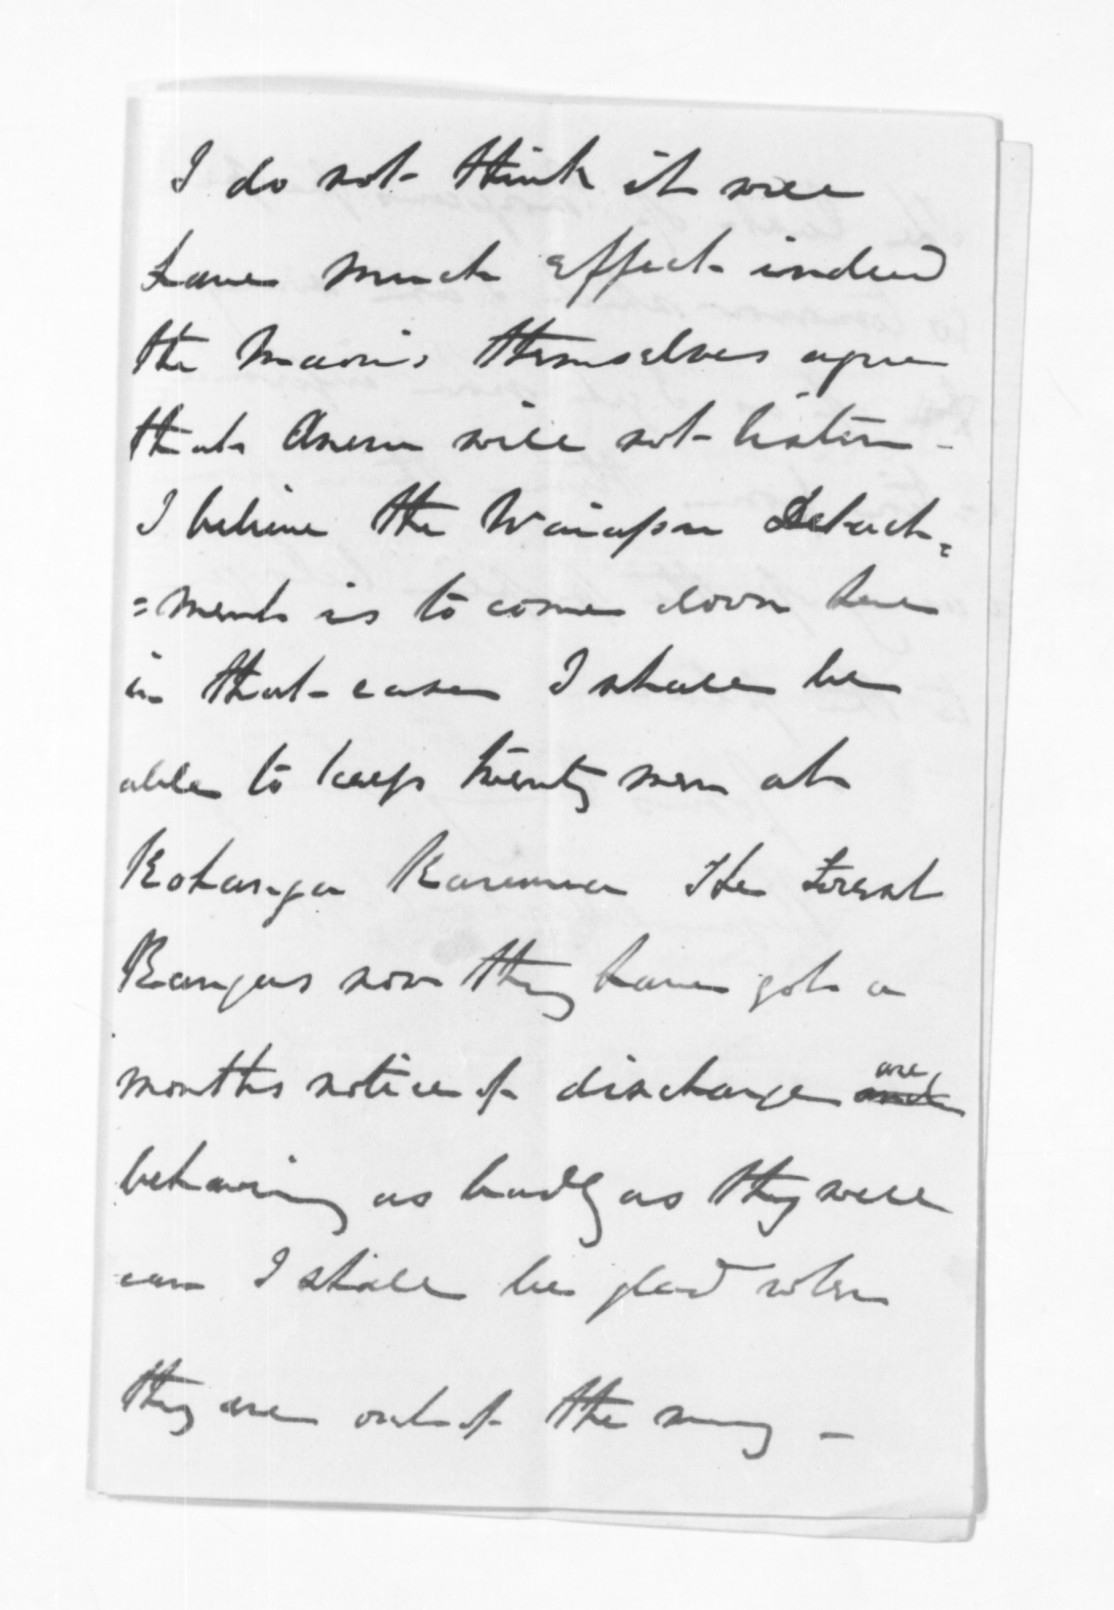 I do not think it will
have much effect indeed
the Maoris themselves agree
that Aneru will not listen -
I believe the Waiapu Detach=
=ment is to come down here
in that case I shall be
able to keep twenty men at
Kohanga Karearea The Forest
Rangers now they have got a
months notice of discharge are
behaving as badly as they well
can I shall be glad when
they are out of the way -